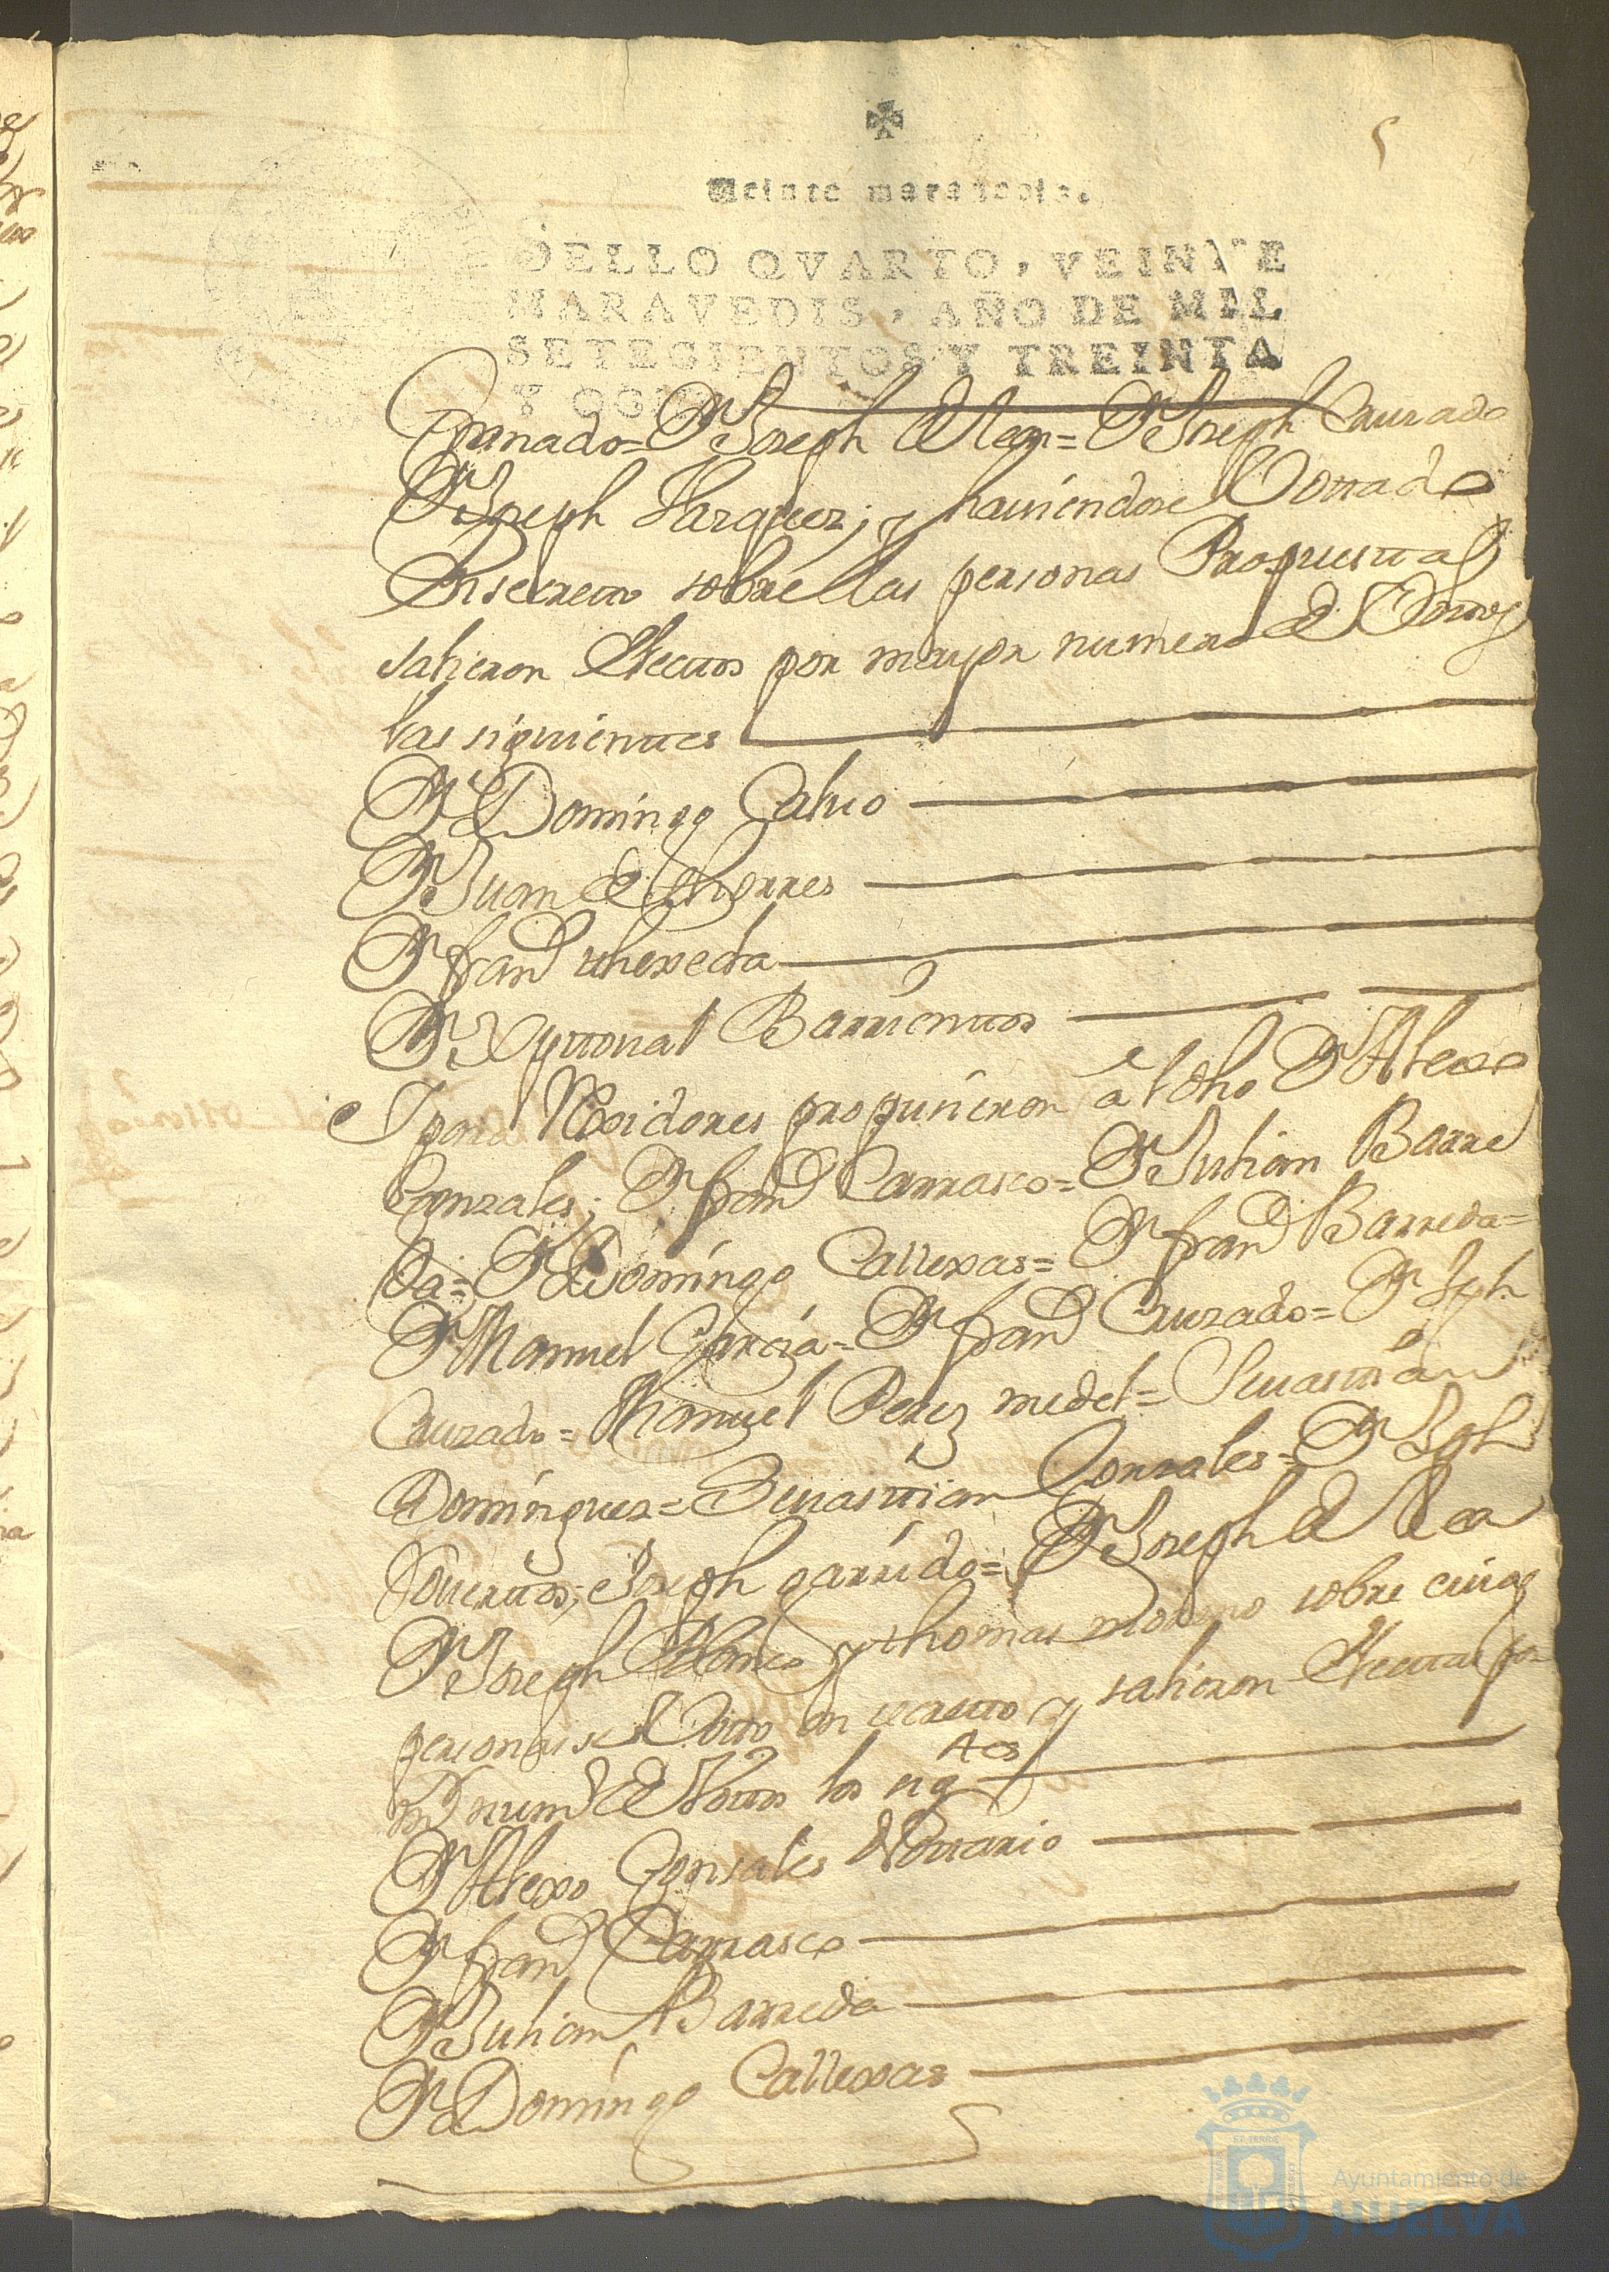 5
Veinte maravedis.
SELLO QVARTO, VEINTE
MARAVEDIS, AÑO DE MIL
SETECIENTOS Y TREINTA
Y OCHO
Granado = Dn Joseph de Lea = Dn Joseph Cruzado
Dn Joseph Vazquez; y haviendose Votado
En secreto sobre las personas Propuestas
salieron Electos por mayor numero de Votos
los siguientes
Dn Domingo Calvo
Dn Juan de thorres
Dn franco thexeda
Dn Xptoval Barrientos
Y para Rexidores propusieron a el dho Dn Alexo
Gonzales; Dn franco Carrasco = Dn Julian Barre
da = Dn Domingo Callexas = Dn franco Barreda =
Dn Manuel Garcia = Dn franco Cruzado = Dn Jph
Cruzado = Manuel Perez medel = Sevastian
Dominguez = Sevastian Gonzales = Dn Jph
Joseph garrido = Dn Joseph de Lea
Dn Joseph y thomas moreno sobre cuias
personas se Voto en secreto y salieron Electos por
numo de Votos los sigtes
Dn Alexo Gonsales Notario
Dn franco Carrasco
Dn Julian Barreda
Dn Domingo Callexas
Ayuntamiento de
HUELVA